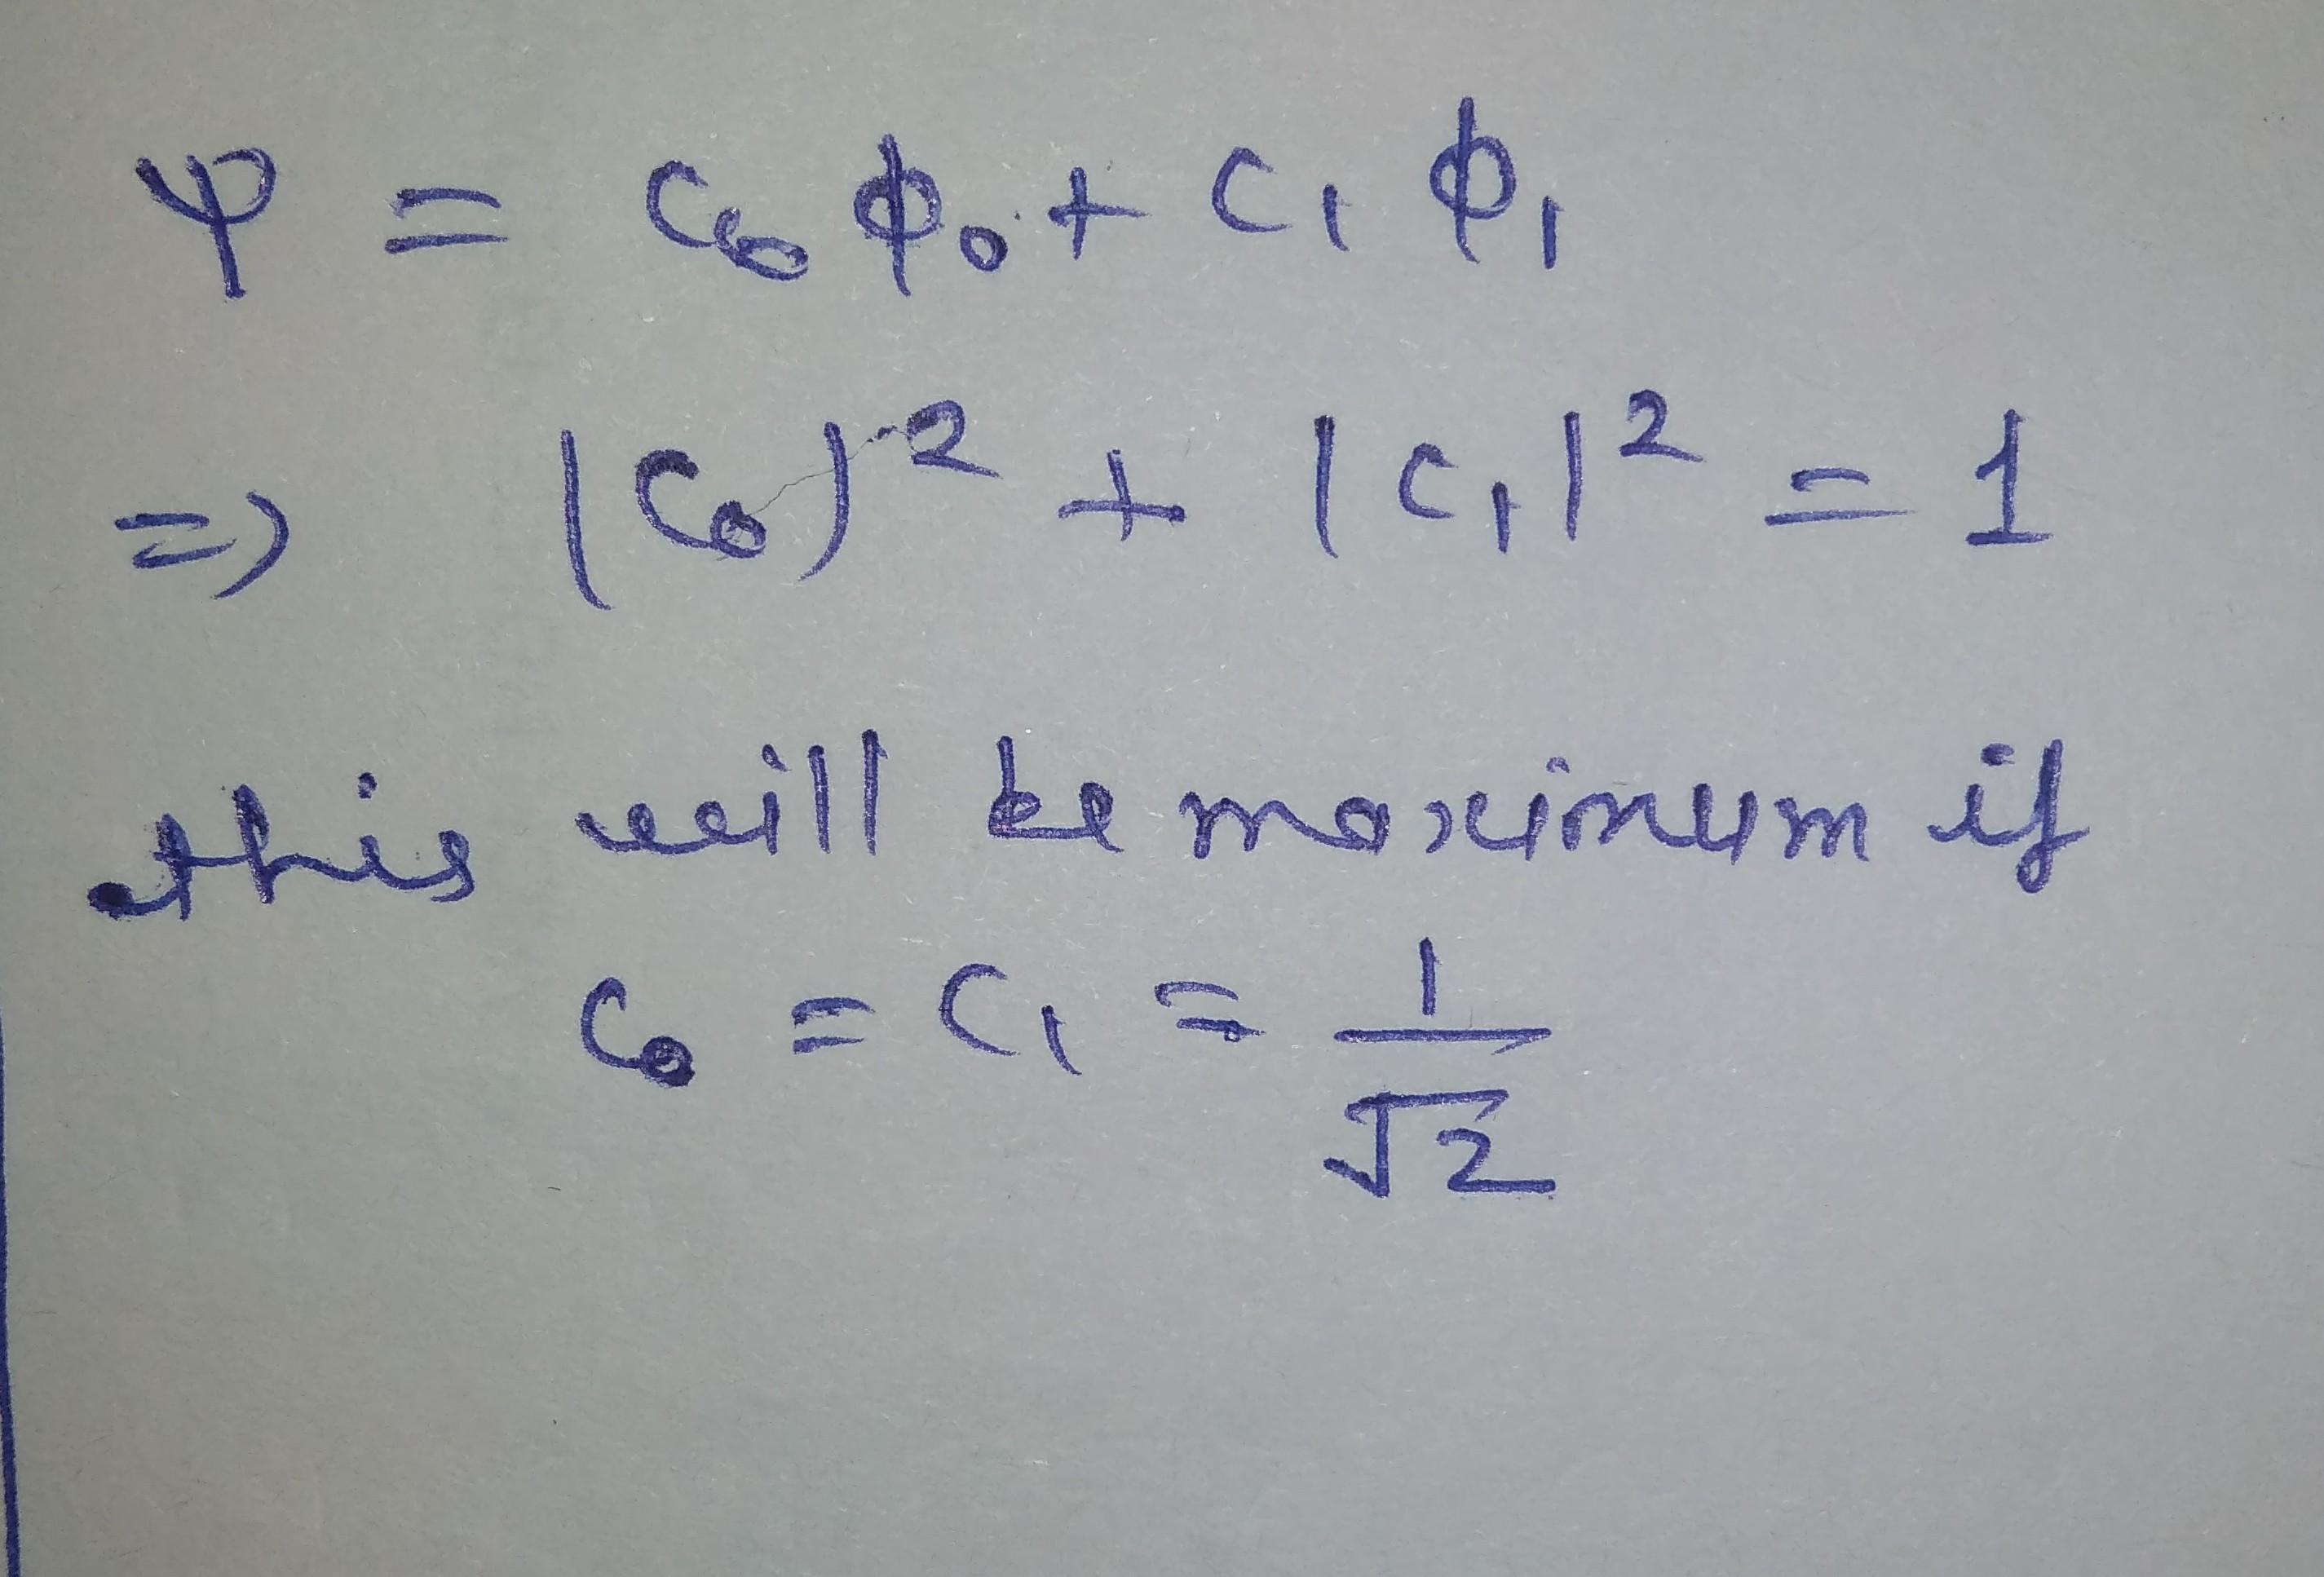 ψ = c₀ ϕ₀ + c₁ ϕ₁
⇒ |c₀|² + |c₁|² = 1
this will be maximum if
c₀ = c₁ = 1/√2